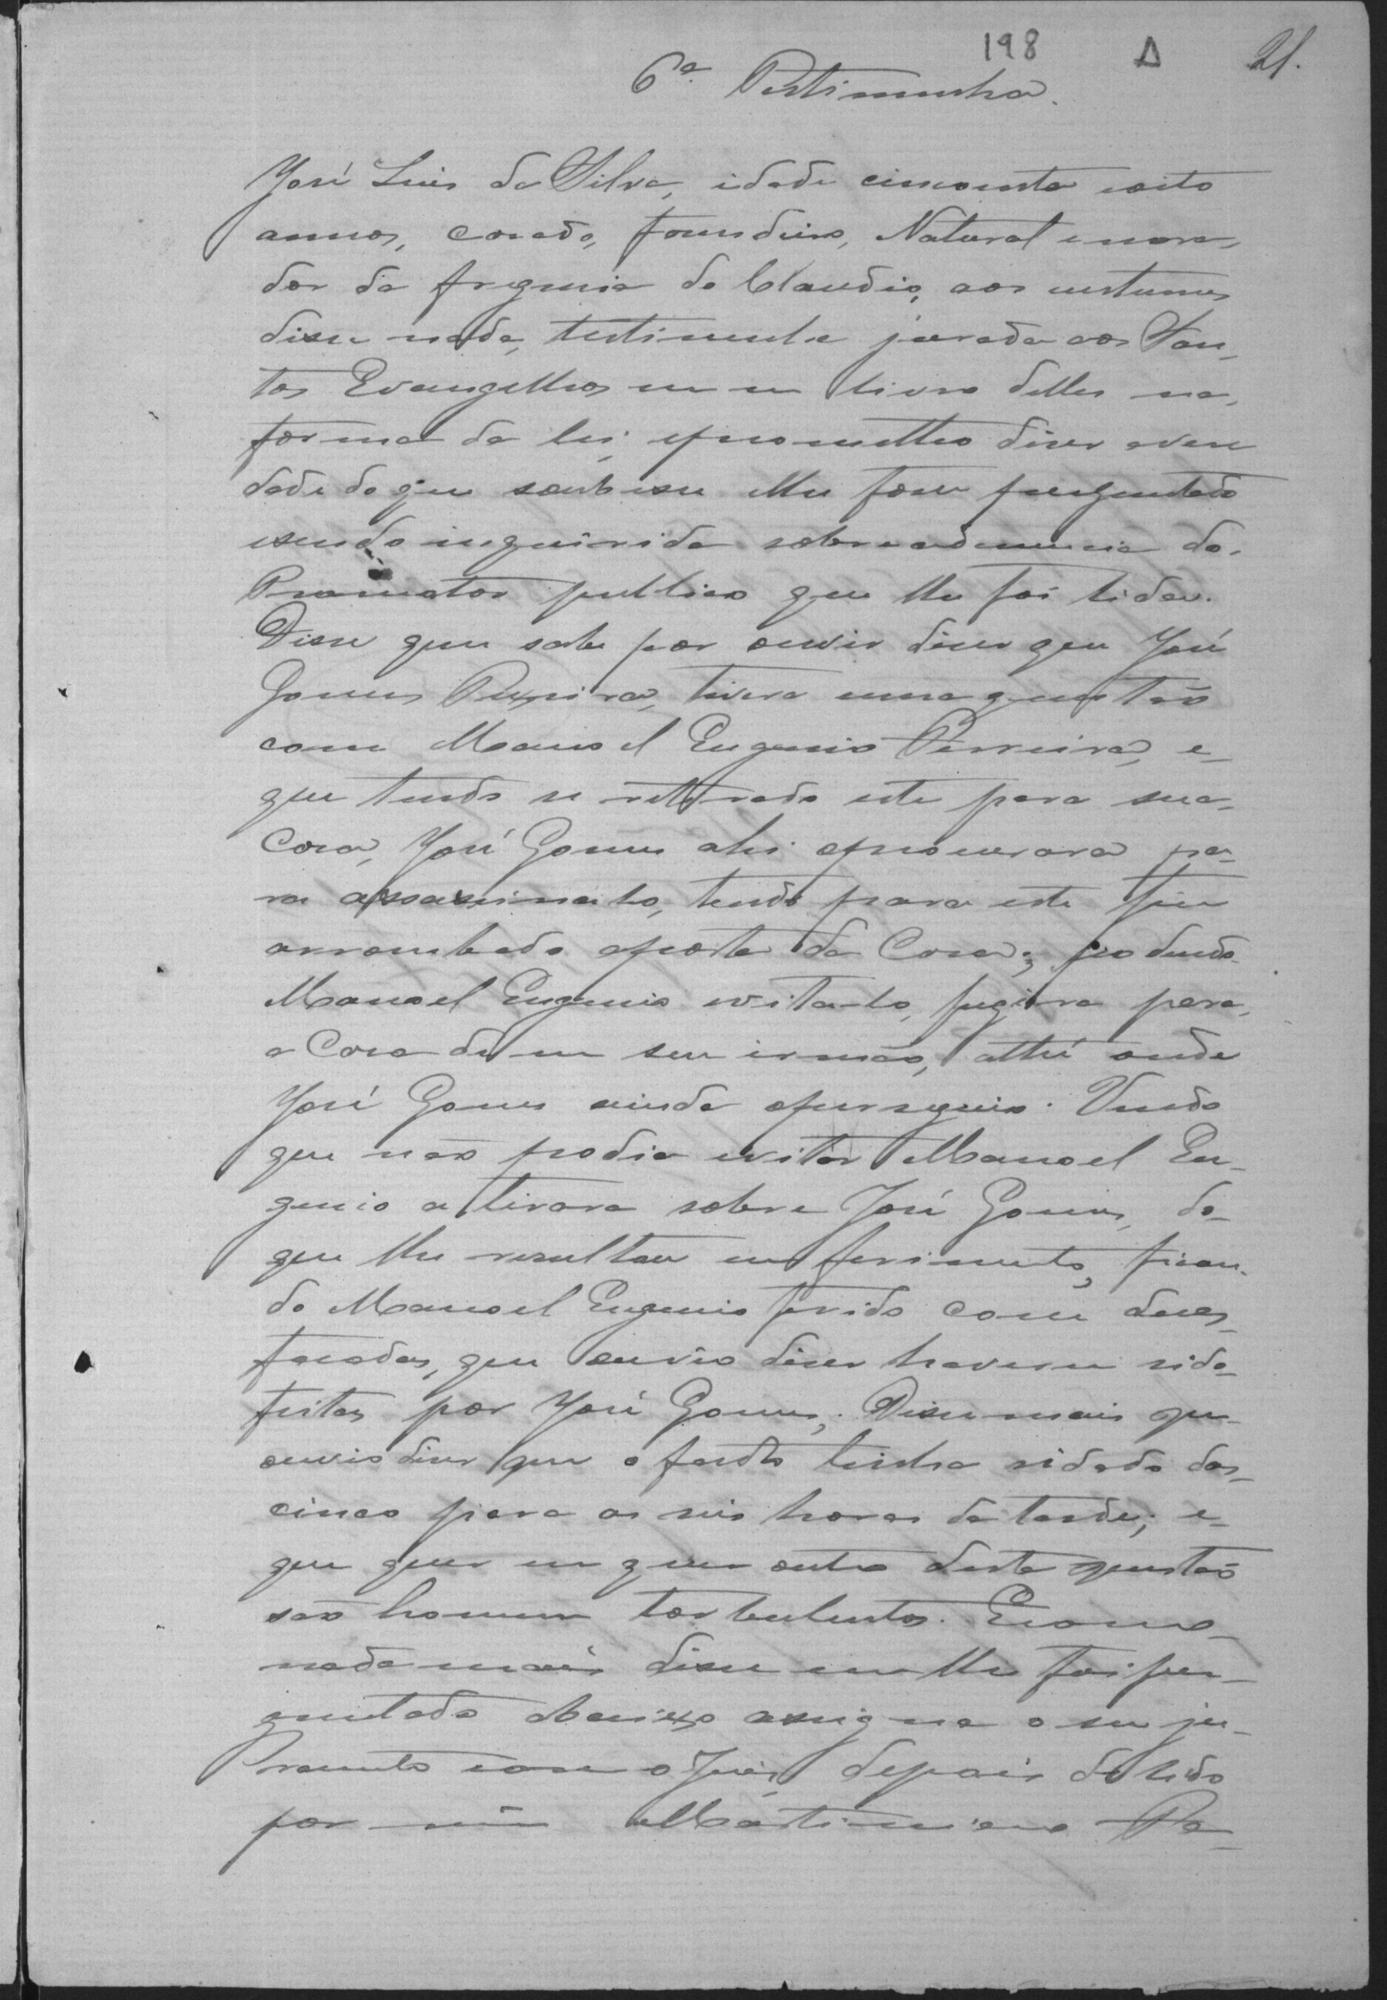 198 21.
6ª Testimunha.
José Luis da Silva, idade cincoenta e oito
annos, casado, fasendeiro, Natural e mora-
dor da freguesia do Claudio, aos custumes
disse nada, testimunha jurada aos San-
tos Evangelhos em um livro delles na
forma da lei, e prometteo diser a ver
dade do que soubesse e lhe fosse perguntado
e sendo inquirida sobre a denuncia do
Promotor publico que lhe foi lida.
Disse que sabe por ouvir diser que José
Gomes Pereira, tivera uma questão
com Manoel Eugenio Ferreira, e
que tendo se retirado este para sua
Casa, José Gomes ahi o procurara pa-
ra assassinal-o, tendo para este fim
arrombado a porta da Casa; podendo
Manoel Eugenio evital-o, fugira para
a Casa de um seu irmão, athé onde
José Gomes ainda o perseguio. Vendo
que não podia evitar Manoel Eu-
genio atirara sobre José Gomes, do
que lhe resultou um ferimento, fican-
do Manoel Eugenio ferido com duas
facadas, que ouvio diser haverem sido
feitas por José Gomes. Disse mais que
ouvio diser que o facto tinha se dado das
cinco para as seis horas da tarde; e
que quer um quer outro desta questão
são homens torbulentos. E como
nada mais disse nem lhe foi per-
guntado abaixo assigna o seu ju-
ramento com o Juis, depois de lido
por mim Martiniano Pe-